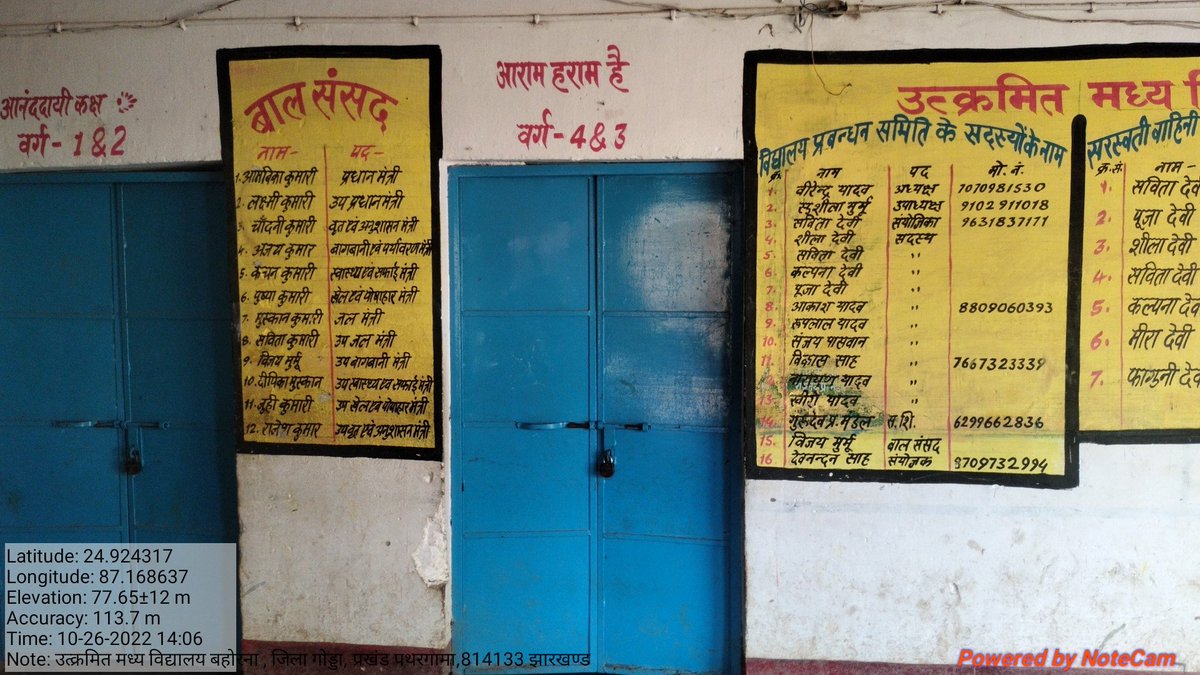 आनंददायी कक्ष
वर्ग - 1 & 2
बाल संसद
नाम - पद -
1. अम्बिका कुमारी प्रधान मंत्री
2. लक्ष्मी कुमारी उप प्रधान मंत्री
3. चाँदनी कुमारी वृत एवं अनुशासन मंत्री
4. अजय कुमार बागबानी एवं पर्यावरण मंत्री
5. कंचन कुमारी स्वास्थ्य एवं सफाई मंत्री
6. पुष्पा कुमारी खेल एवं पोषाहार मंत्री
7. मुस्कान कुमारी जल मंत्री
8. सविता कुमारी उप जल मंत्री
9. विजय मुर्मू उप बागबानी मंत्री
10. दीपिका मुस्कान उप स्वास्थ्य एवं सफाई मंत्री
11. जुही कुमारी उप खेल एवं पोषाहार मंत्री
12. राजेश कुमार उप वृत एवं अनुशासन मंत्री
आराम हराम है
वर्ग - 4 & 3
उत्क्रमित मध्य
विद्यालय प्रबन्धन समिति के सदस्यों के नाम
क्र. नाम पद मो. नं.
1. वीरेन्द्र यादव अध्यक्ष 7070981530
2. सुशीला मुर्मू उपाध्यक्ष 9102911018
3. सविता देवी संयोजिका 9631837171
4. शीला देवी सदस्य
5. सविता देवी ,,
6. कल्पना देवी ,,
7. पूजा देवी ,,
8. आकाश यादव ,, 8809060393
9. रूपलाल यादव ,,
10. संजय पासवान ,,
11. विकास साह ,, 7667323339
यादव ,,
13. यादव ,,
14. गुरूदेव प्र. मंडल स. शि. 6299662836
15. विजय मुर्मू बाल संसद
16 देवनन्दन साह संयोजक 8709732994
सरस्वती वाहिनी
क्र. सं. नाम -
1. सविता देवी
2. पूजा देवी
3. शीला देवी
4. सविता देवी
5. कल्पना देवी
6. मीरा देवी
7. फागुनी देवी
Latitude: 24.924317
Longitude: 87.168637
Elevation: 77.65±12 m
Accuracy: 113.7 m
Time: 10-26-2022 14:06
Note: उत्क्रमित मध्य विद्यालय बहोरना , जिला गोड्डा, प्रखंड पथरगामा,814133 झारखण्ड
Powered by NoteCam